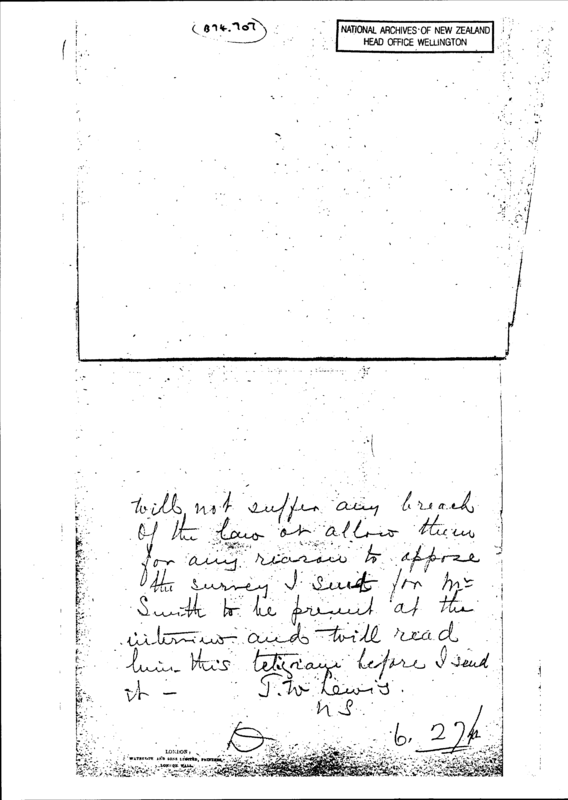 (B94.707)
NATIONAL ARCHIVES OF NEW ZEALAND
HEAD OFFICE WELLINGTON
will not suffer any breach
of the law or allow them
for any reason to oppose
the survey I sent for Mr
Smith to be present at the
interview and will read
him this telegram before I send
it –
T. W Lewis.
N S
6. 27p
LONDON.
WATERLOW AND SONS LIMITED, PRINTERS,
LONDON WALL.